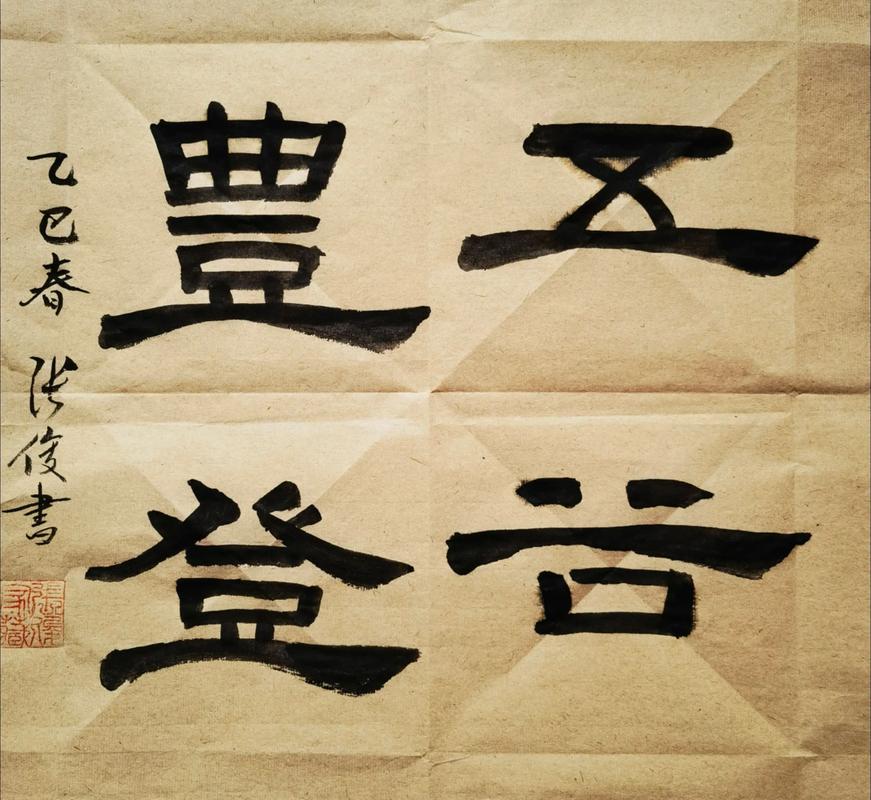 五谷
豊登
乙巳春 张俊書